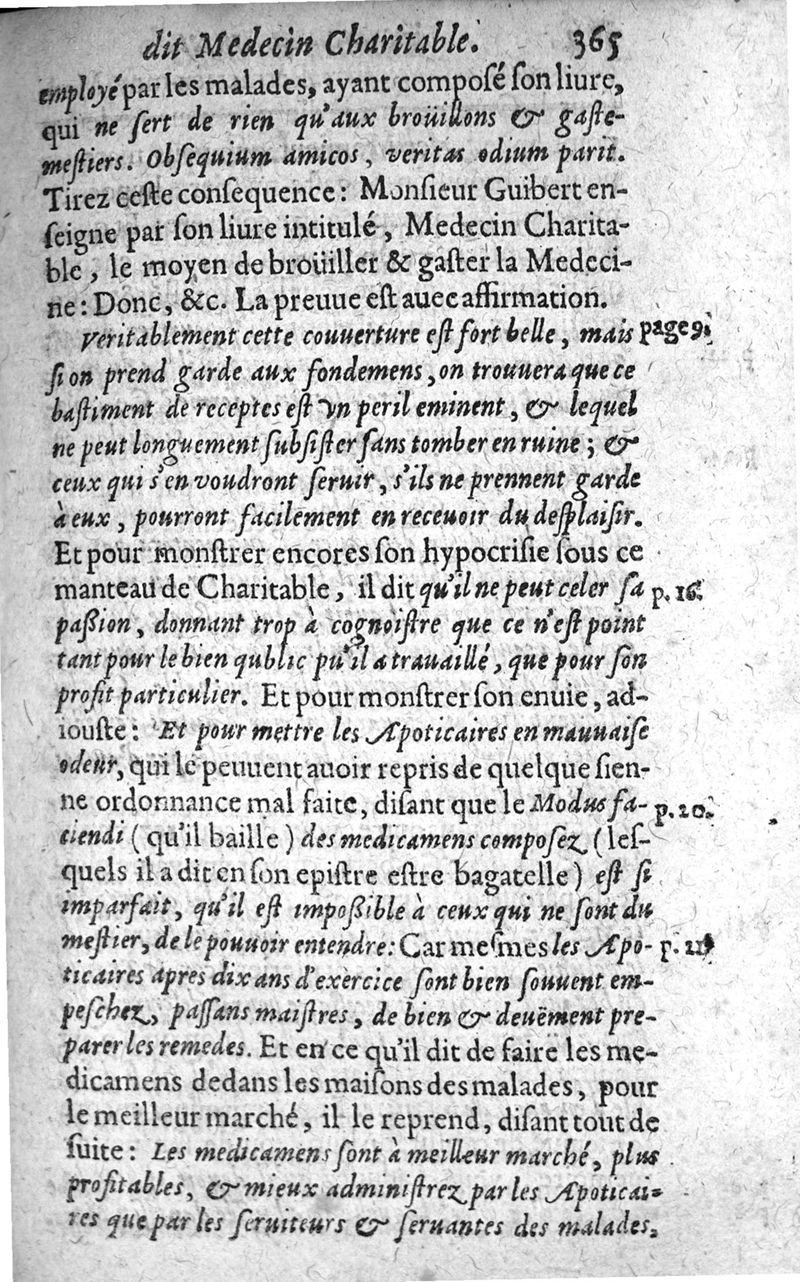 dit Medecin Charitable. 365
employé par les malades, ayant composé son liure,
qui ne sert de rien qu'aux broüillons & gaste-
mestiers. Obsequium amicos, veritas odium parit.
Tirez ceste consequence: Monsieur Guibert en-
seigne par son liure intitulé, Medecin Charita-
ble, le moyen de broüiller & gaster la Medeci-
ne: Donc, &c. La preuue est auec affirmation.
Veritablement cette couuerture est fort belle, mais page 9.
si on prend garde aux fondemens, on trouuera que ce
bastiment de receptes est vn peril eminent, & lequel
ne peut longuement subsister sans tomber en ruine; &
ceux qui s'en voudront seruir, s'ils ne prennent garde
à eux, pourront facilement en receuoir du desplaisir.
Et pour monstrer encores son hypocrisie sous ce
manteau de Charitable, il dit qu'il ne peut celer sa p. 16.
passion, donnant trop à cognoistre que ce n'est point
tant pour le bien qublic pu'il a trauaillé, que pour son
profit particulier. Et pour monstrer son enuie, ad-
iouste: Et pour mettre les Apoticaires en mauuaise
odeur, qui le peuuent auoir repris de quelque sien-
ne ordonnance mal faite, disant que le Modus fa- p. 20.
ciendi (qu'il baille) des medicamens composez (les-
quels il a dit en son epistre estre bagatelle) est si
imparfait, qu'il est impossible à ceux qui ne sont du
mestier, de le pouuoir entendre: Car mesmes les Apo- p. 21
ticaires apres dix ans d'exercice sont bien souuent em-
peschez, passans maistres, de bien & deuëment pre-
parer les remedes. Et en ce qu'il dit de faire les me-
dicamens dedans les maisons des malades, pour
le meilleur marché, il le reprend, disant tout de
suite: Les medicamens sont à meilleur marché, plus
profitables, & mieux administrez par les Apoticai-
res que par les seruiteurs & seruantes des malades,